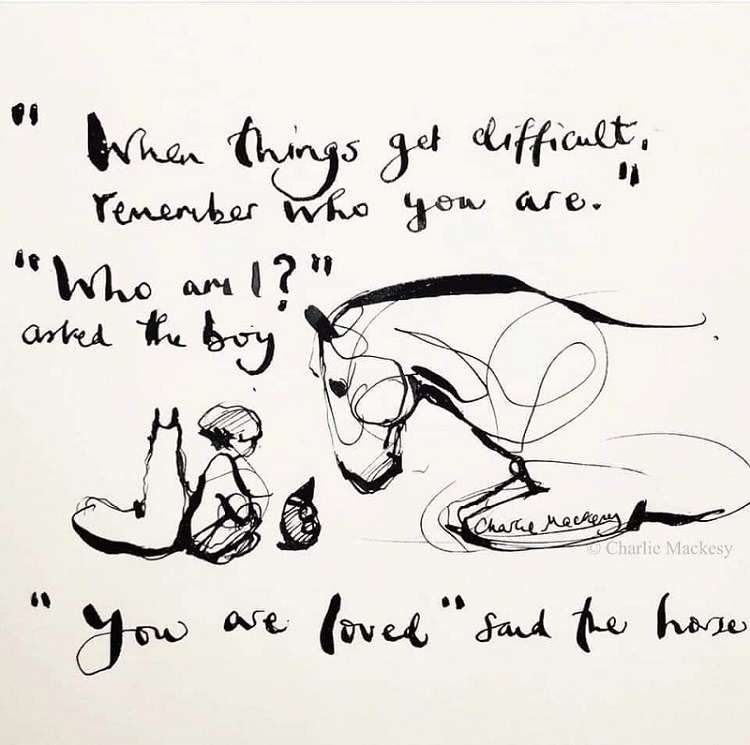 " When things get difficult,
remember who you are."
"Who am I?"
asked the boy
Charlie Mackesy
© Charlie Mackesy
" You are loved" said the horse